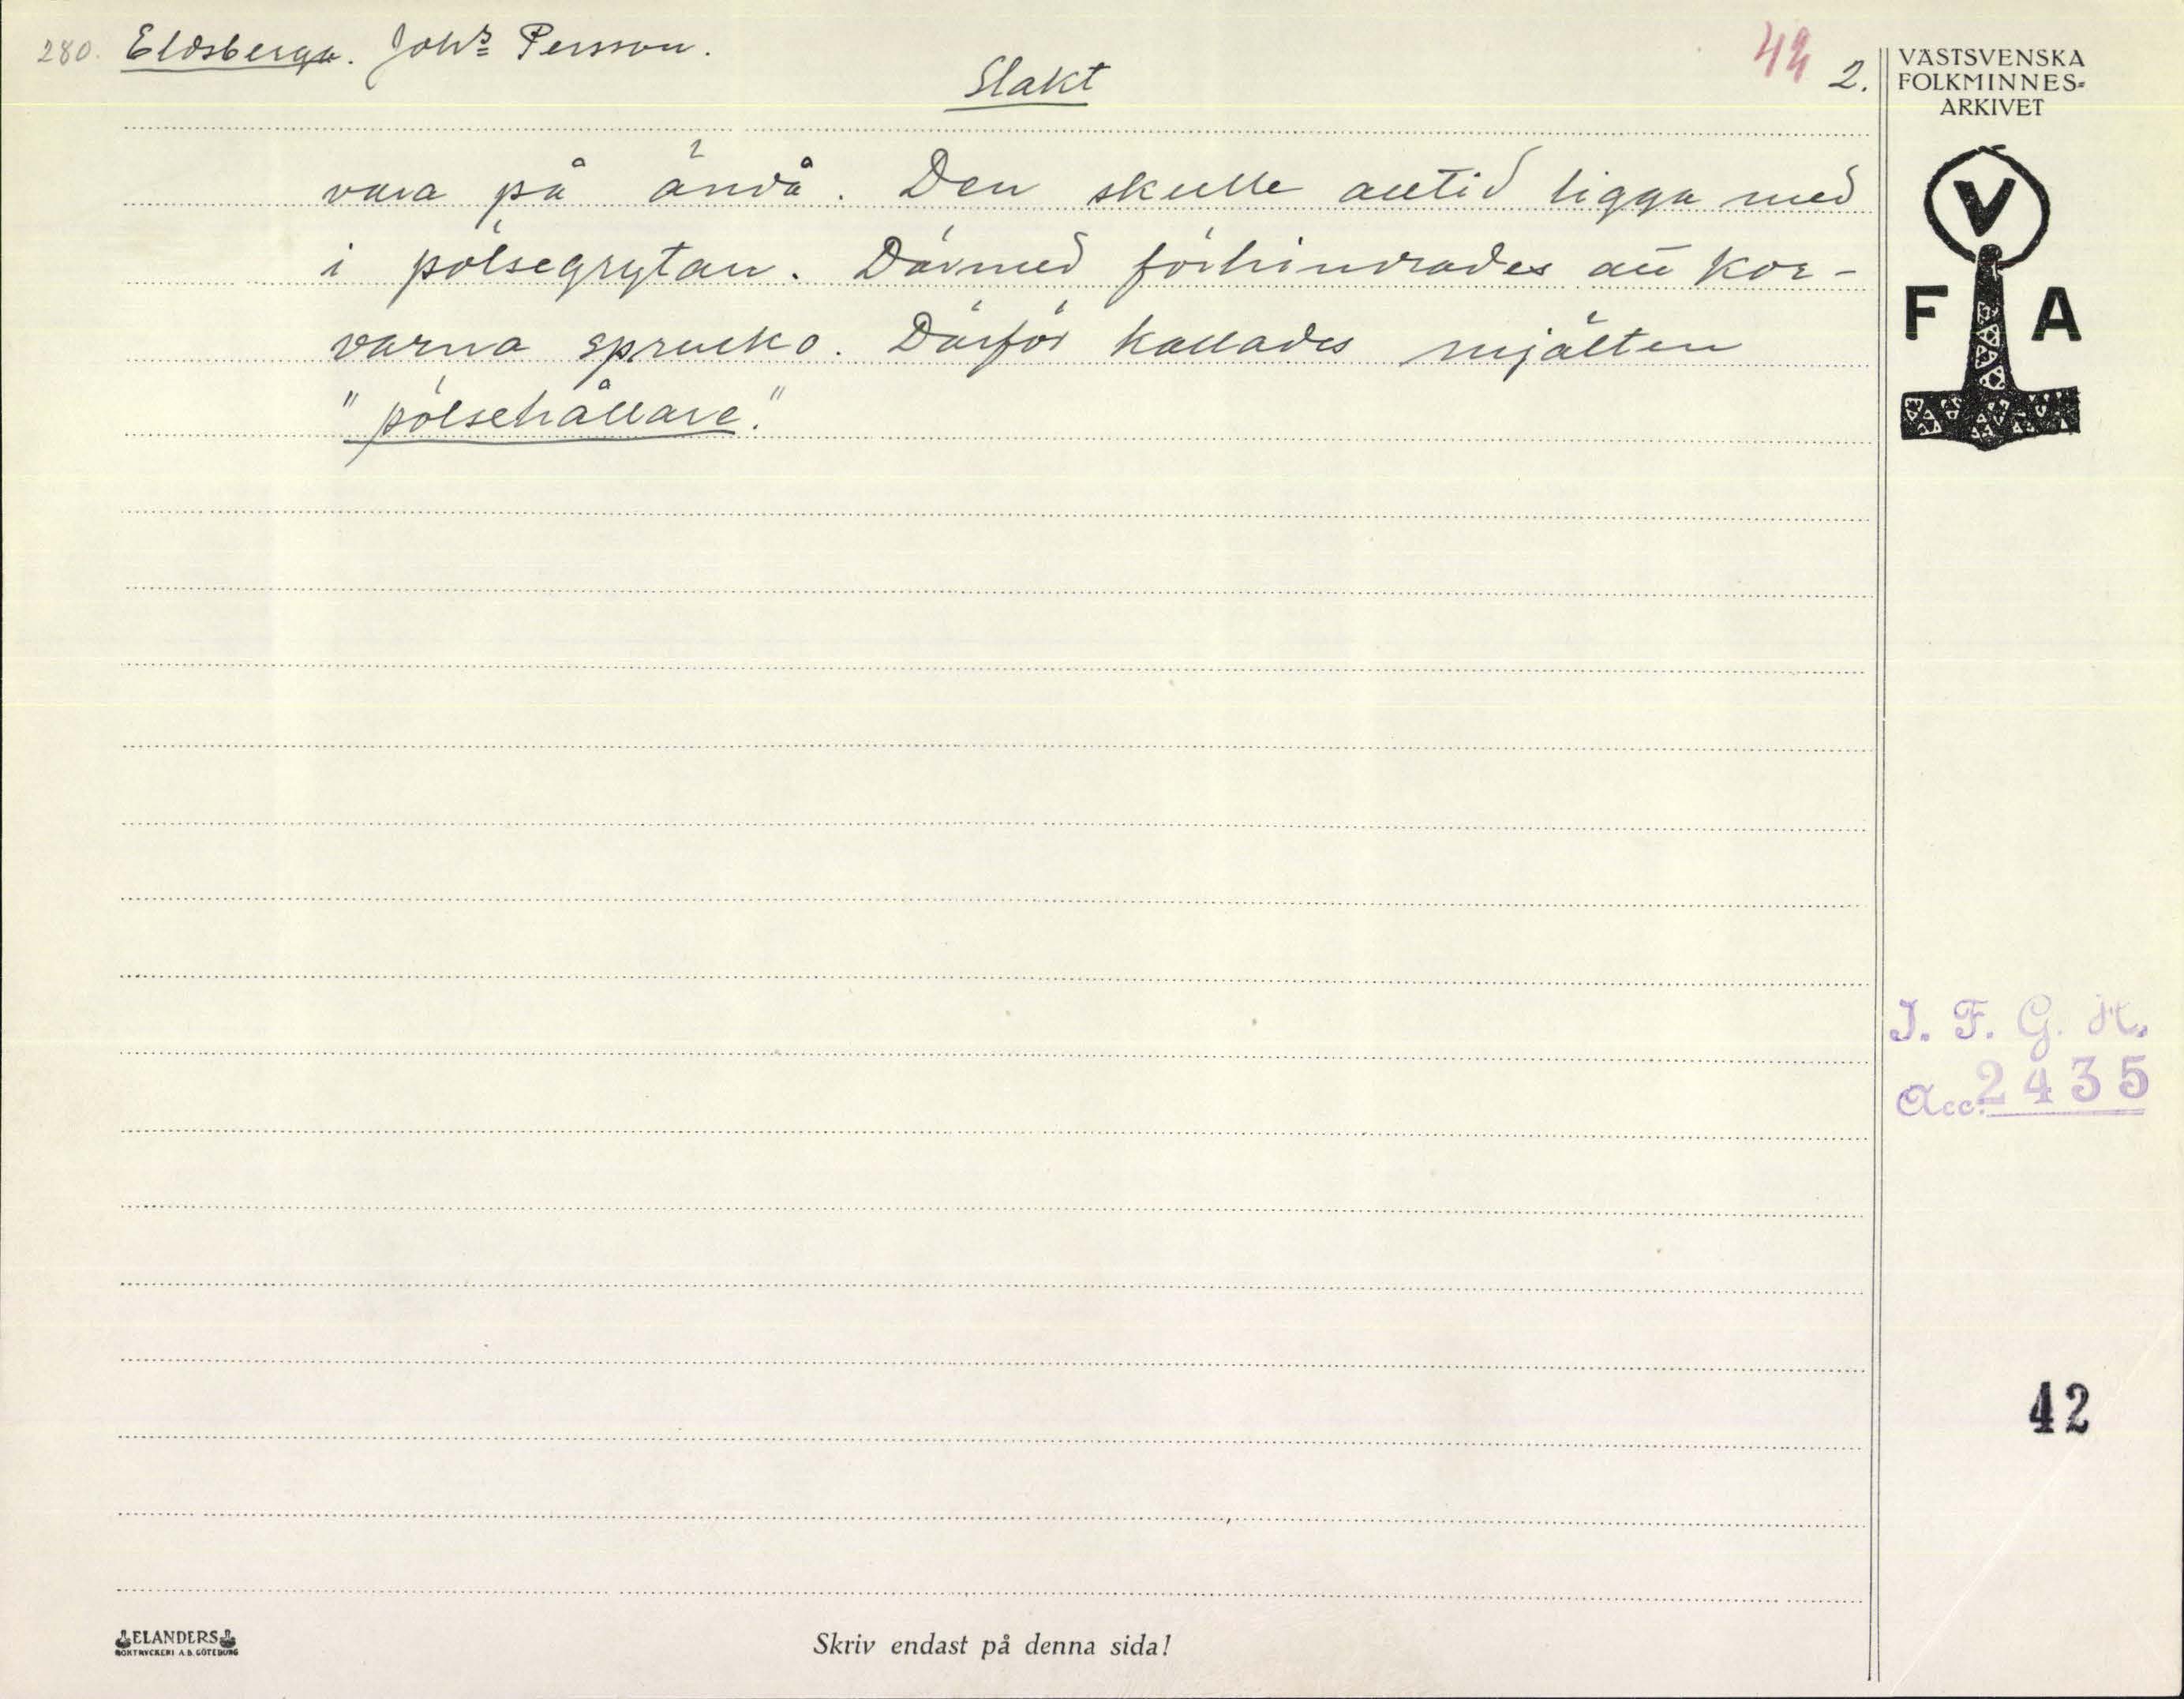 280. Eldsberga. Johs Persson.
Slakt
42 2.
VÄSTSVENSKA
FOLKMINNES=
ARKIVET
V
F A
vara på ändå. Den skulle alltid ligga med
i pölsegrytan. Därmed förhindrades att kor-
varna sprucko. Därför kallades mjälten
"pölsehållare."
I. F. G. H.
Acc. 2435
42
ELANDERS
BOKTRYCKERI A.B. GÖTEBORG
Skriv endast på denna sida!